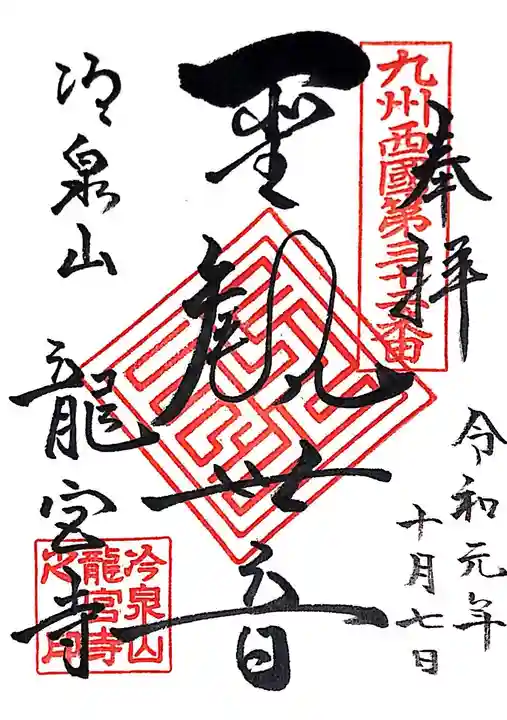 奉拝
九州西國第三十二番
令和元年
十月七日
聖観世音
冷泉山
龍宮寺
冷泉山
龍宮寺
之印